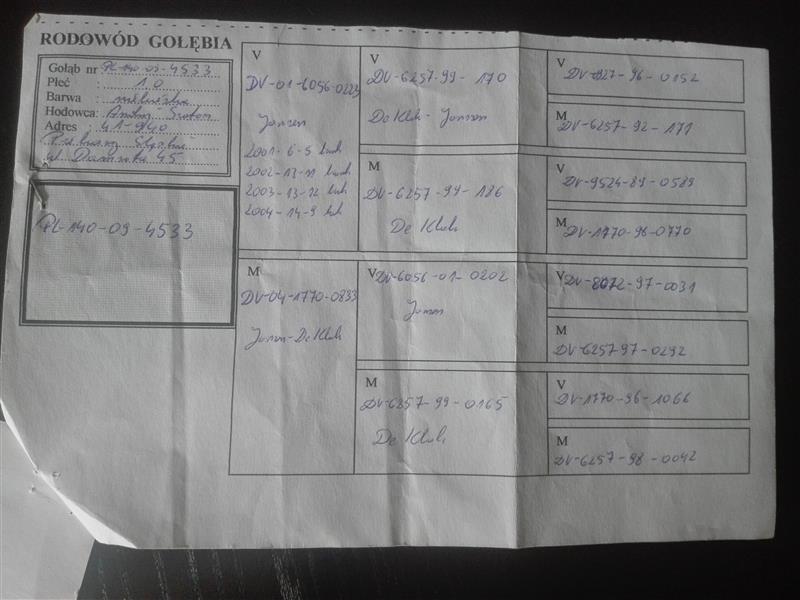 RODOWÓD GOŁĘBIA
Gołąb nr PL-140-09-4533
Płeć : 1.0
Barwa :
Hodowca:
Adres : 41-940
45
PL-140-09-4533
V
DV-01-6056-0223
Jansen
2001-6-5
2002-13-11
2003-13-12
2004-14-9
M
DV-04-1770-0833
Jansen-De Klak
V
DV-6257-99-170
De Klak-Jansen
M
DV-6257-99-186
De Klak
V
DV-6056-01-0202
Jansen
M
DV-6257-99-0165
De Klak
V
96-0152
M
DV-6257-92-171
V
DV-9524-89-0589
M
DV-1770-96-0770
V
97-0031
M
DV-6257-97-0292
V
DV-1770-96-1066
M
DV-6257-98-0042